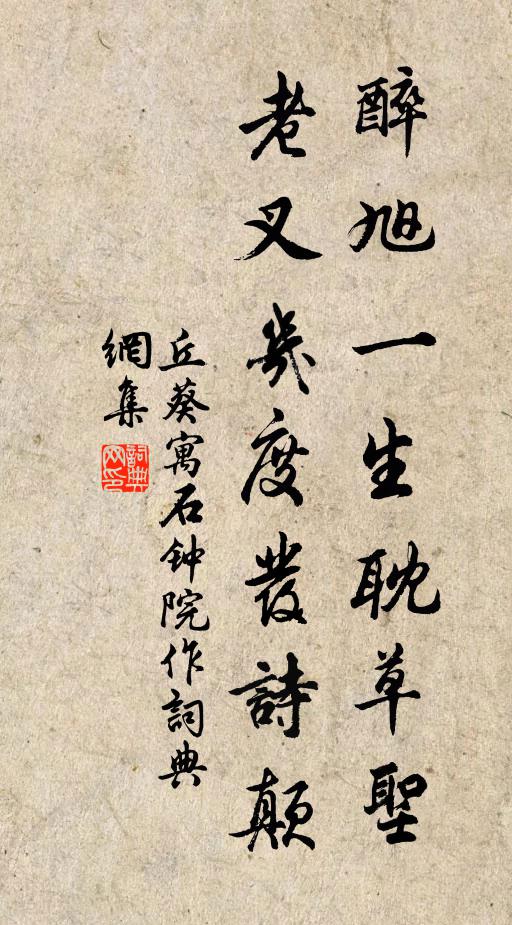 醉旭一生耽草聖
老叉幾度發詩顛
丘葵寓石钟院作詞典
網集
詞典網印